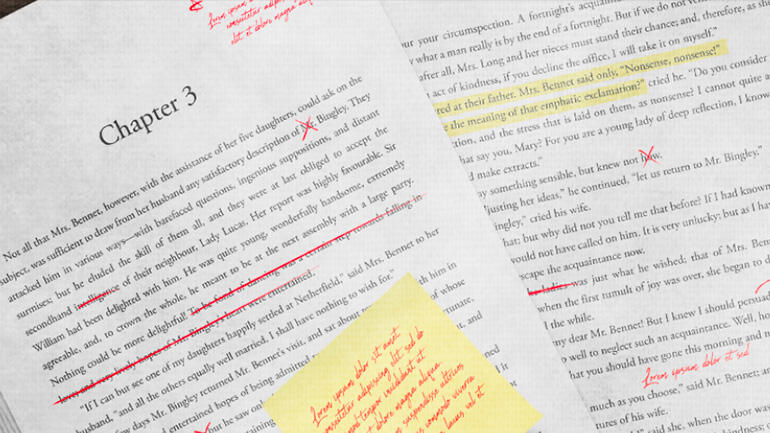 Lorem ipsum
consectetur adipiscing
elit et dolore magna aliqua
Chapter 3
Not all that Mrs. Bennet, however, with the assistance of her five daughters, could ask on the
subject, was sufficient to draw from her husband any satisfactory description of Mr. Bingley. They
attacked him in various ways—with barefaced questions, ingenious suppositions, and distant
surmises; but he eluded the skill of them all, and they were at last obliged to accept the
secondhand intelligence of their neighbour, Lady Lucas. Her report was highly favourable. Sir
William had been delighted with him. He was quite young, wonderfully handsome, extremely
agreeable, and, to crown the whole, he meant to be at the next assembly with a large party.
Nothing could be more delightful! To be fond of dancing was a certain step towards falling in
love; and very lively hopes of Mr. Bingley's heart were entertained.
"If I can but see one of my daughters happily settled at Netherfield," said Mrs. Bennet to her
husband, "and all the others equally well married, I shall have nothing to wish for."
few days Mr. Bingley returned Mr. Bennet's visit, and sat about
with him in
entertained hopes of being admitted
of whose
but he saw only
and
Lorem ipsum dolor sit amet
consectetur adipiscing elit, sed do
tempor incididunt ut
dolore magna aliqua
suspendisse ultrices
viverra
lacus vel et
your circumspection. A fortnight's
what a man really is by the end of a fortnight. But if we do not
after all, Mrs. Long and her nieces must stand their chance; and, therefore, as she
act of kindness, if you decline the office, I will take it on myself."
red at their father. Mrs. Bennet said only, "Nonsense, nonsense!"
the meaning of that emphatic exclamation?" cried he. "Do you consider
and the stress that is laid on them, as nonsense? I cannot quite
say you, Mary? For you are a young lady of deep reflection, I know
make extracts."
something sensible, but knew not how.
adjusting her ideas," he continued, "let us return to Mr. Bingley."
ingley," cried his wife.
that; but why did not you tell me that before? If I had known
would not have called on him. It is very unlucky; but as I
scape the acquaintance now.
ladies was just what he wished; that of Mrs.
when the first tumult of joy was over, she began to
the while.
my dear Mr. Bennet! But I knew I should
to well to neglect such an acquaintance. Well,
that you should have gone this morning and
Lorem ipsum dolor et sed
much as you choose," said Mr. Bennet;
tures of his wife.
said she, when the door was